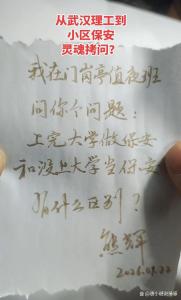 从武汉理工到
小区保安
灵魂拷问?
我在门岗亭值夜班
问你个问题:
上完大学做保安
和没上大学当保安
有什么区别?
熊辉